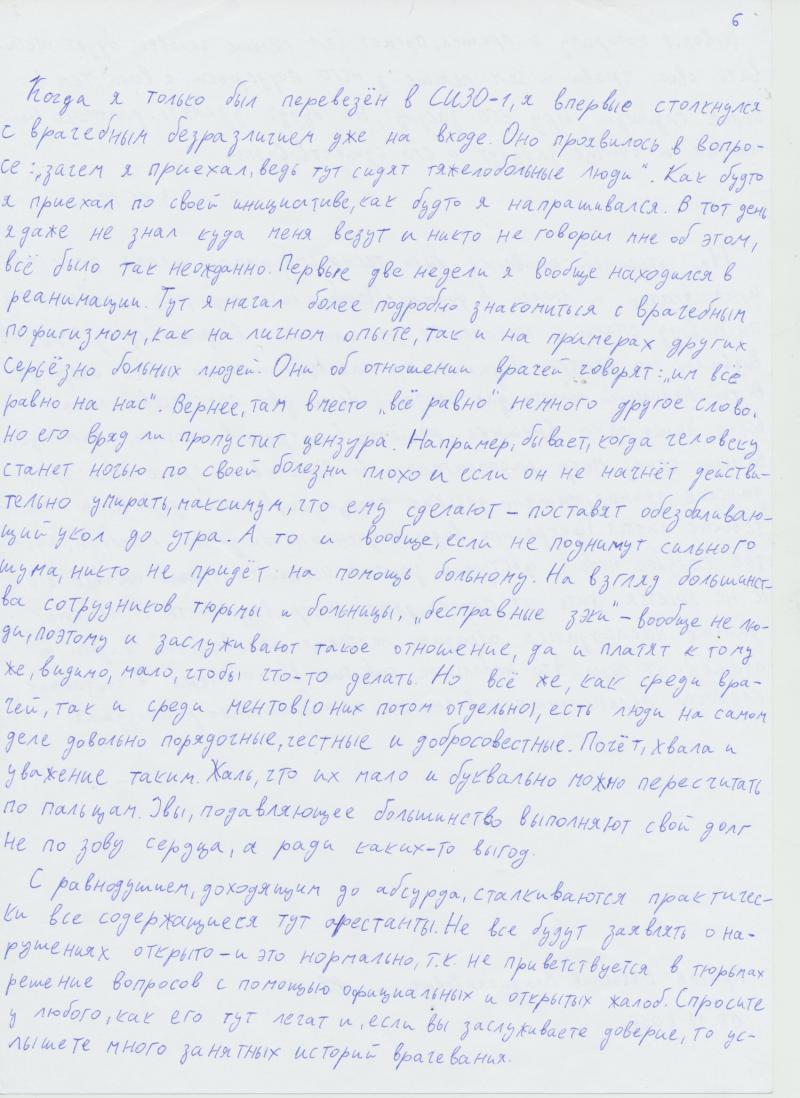 6
Когда я только был перевезён в СИЗО-1, я впервые столкнулся
с врачебным безразличием уже на входе. Оно проявилось в вопро-
се: „зачем я приехал, ведь тут сидят тяжелобольные люди“. Как будто
я приехал по своей инициативе, как будто я напрашивался. В тот день
я даже не знал куда меня везут и никто не говорил мне об этом,
всё было так неожданно. Первые две недели я вообще находился в
реанимации. Тут я начал более подробно знакомиться с врачебным
пофигизмом, как на личном опыте, так и на примерах других
серьёзно больных людей. Они об отношении врачей говорят: „им всё
равно на нас“. Вернее, там вместо „всё равно“ немного другое слово,
но его вряд ли пропустит цензура. Например, бывает, когда человеку
станет ночью по своей болезни плохо и если он не начнёт действи-
тельно умирать, максимум, что ему сделают – поставят обезбаливаю-
щий укол до утра. А то и вообще, если не поднимут сильного
шума, никто не придёт на помощь больному. На взгляд большинст-
ва сотрудников тюрьмы и больницы, „бесправные зэки“ – вообще не лю-
ди, поэтому и заслуживают такое отношение, да и платят к тому
же, видимо, мало, чтобы что-то делать. Но всё же, как среди вра-
чей, так и среди ментов (о них потом отдельно), есть люди на самом
деле довольно порядочные, честные и добросовестные. Почёт, хвала и
уважение таким. Жаль, что их мало и буквально можно пересчитать
по пальцам. Увы, подавляющее большинство выполняют свой долг
не по зову сердца, а ради каких-то выгод.
С равнодушием, доходящим до абсурда, сталкиваются практичес-
ки все содержащиеся тут арестанты. Не все будут заявлять о на-
рушениях открыто – и это нормально, т.к. не приветствуется в тюрьмах
решение вопросов с помощью официальных и открытых жалоб. Спросите
у любого, как его тут лечат и, если вы заслуживаете доверие, то ус-
лышете много занятных историй врачевания.